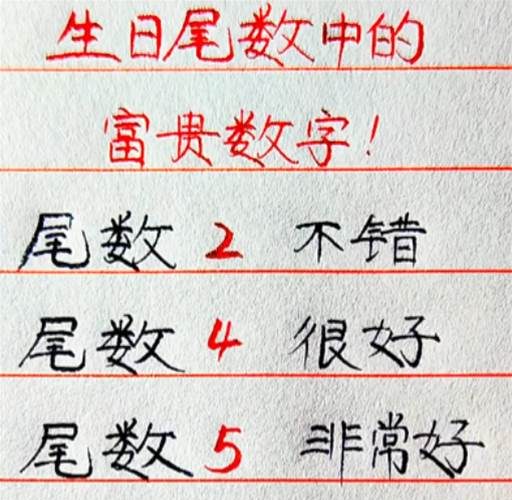 生日尾数中的
富贵数字！
尾数 2 不错
尾数 4 很好
尾数 5 非常好